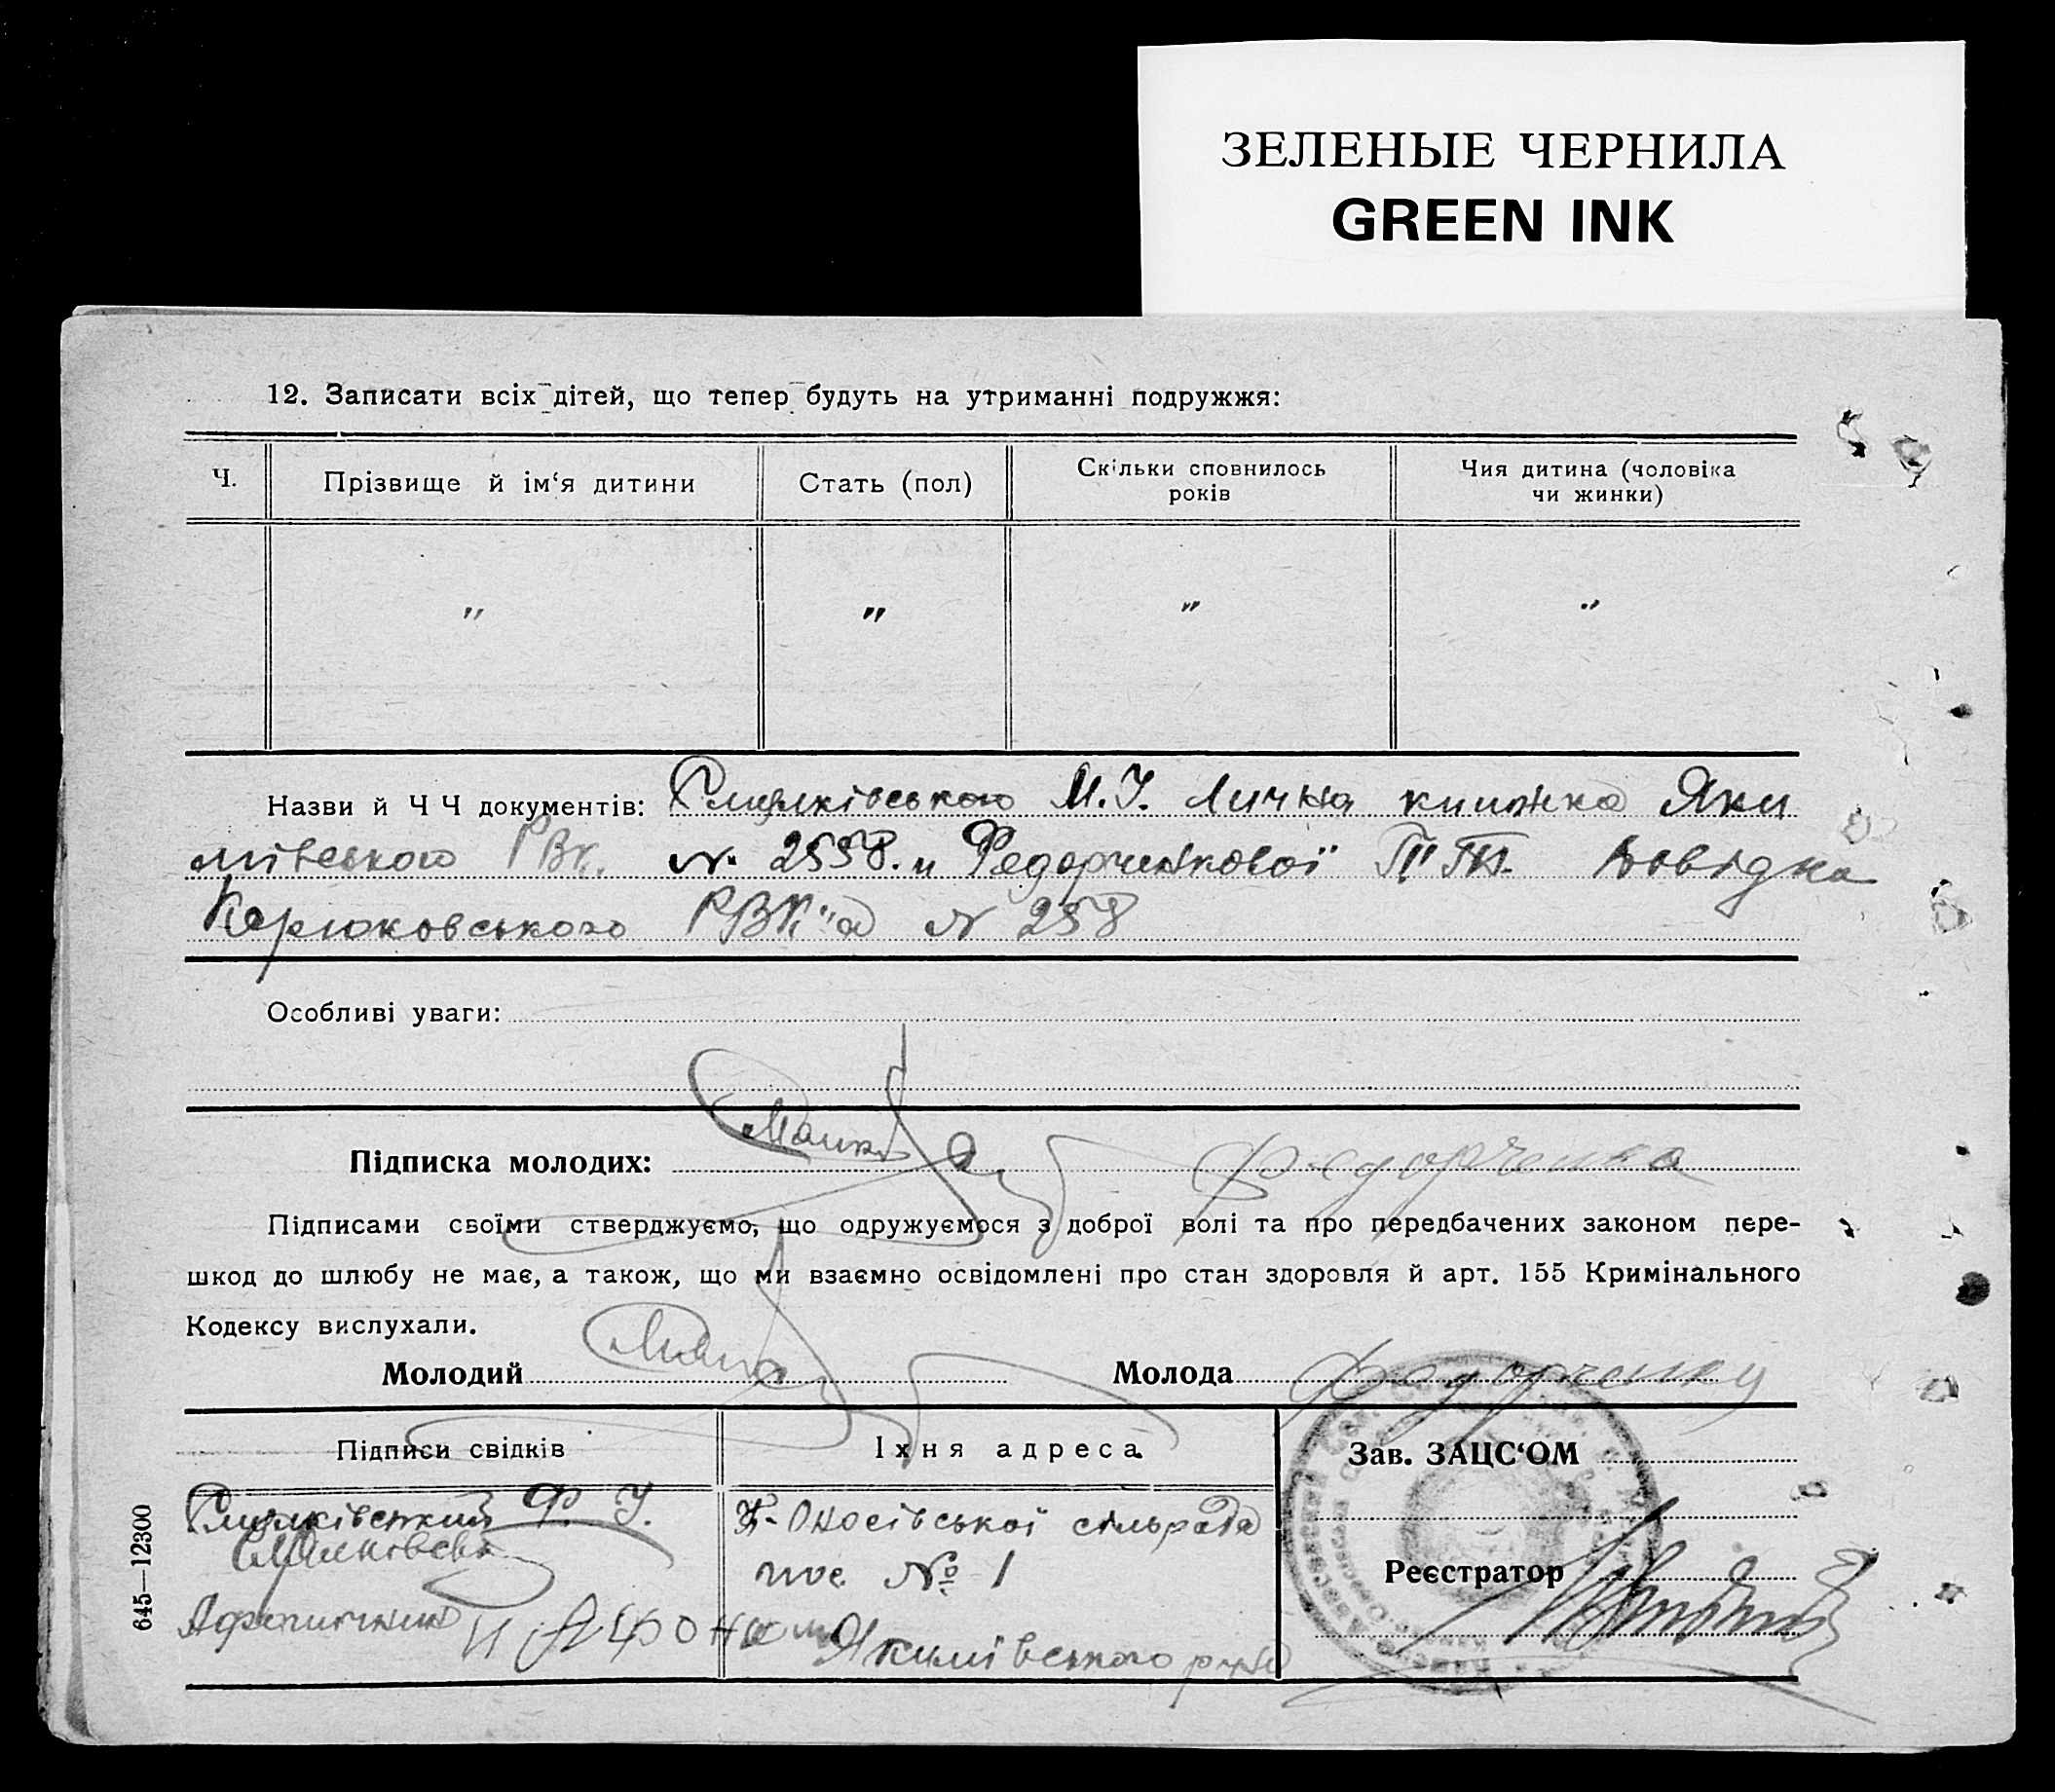 ЗЕЛЕНЫЕ ЧЕРНИЛА
GREEN INK
12. Записати всіх дітей, що тепер будуть на утриманні подружжя:
Ч.
Прізвище й ім‘я дитини
Стать (пол)
Скільки сповнилось
років
Чия дитина (чоловіка
чи жинки)
" " " "
Назви й Ч Ч документів: М. Лична книжка Яки
мівського РВК. № 2558. и Федорченкової Довідка
Корюковського РВК"а № 258
Особливі уваги:
Підписка молодих: Федорченко
Підписами своїми стверджуємо, що одружуємося з доброї волі та про передбачених законом пере-
шкод до шлюбу не має, а також, що ми взаємно освідомлені про стан здоровля й арт. 155 Кримінального
Кодексу вислухали.
Молодий
Молода
Підписи свідків
Їхня адреса
Зав. ЗАЦС‘ОМ
Ф.
сільрада
№ 1
Реєстратор
Якимівського
645—12300